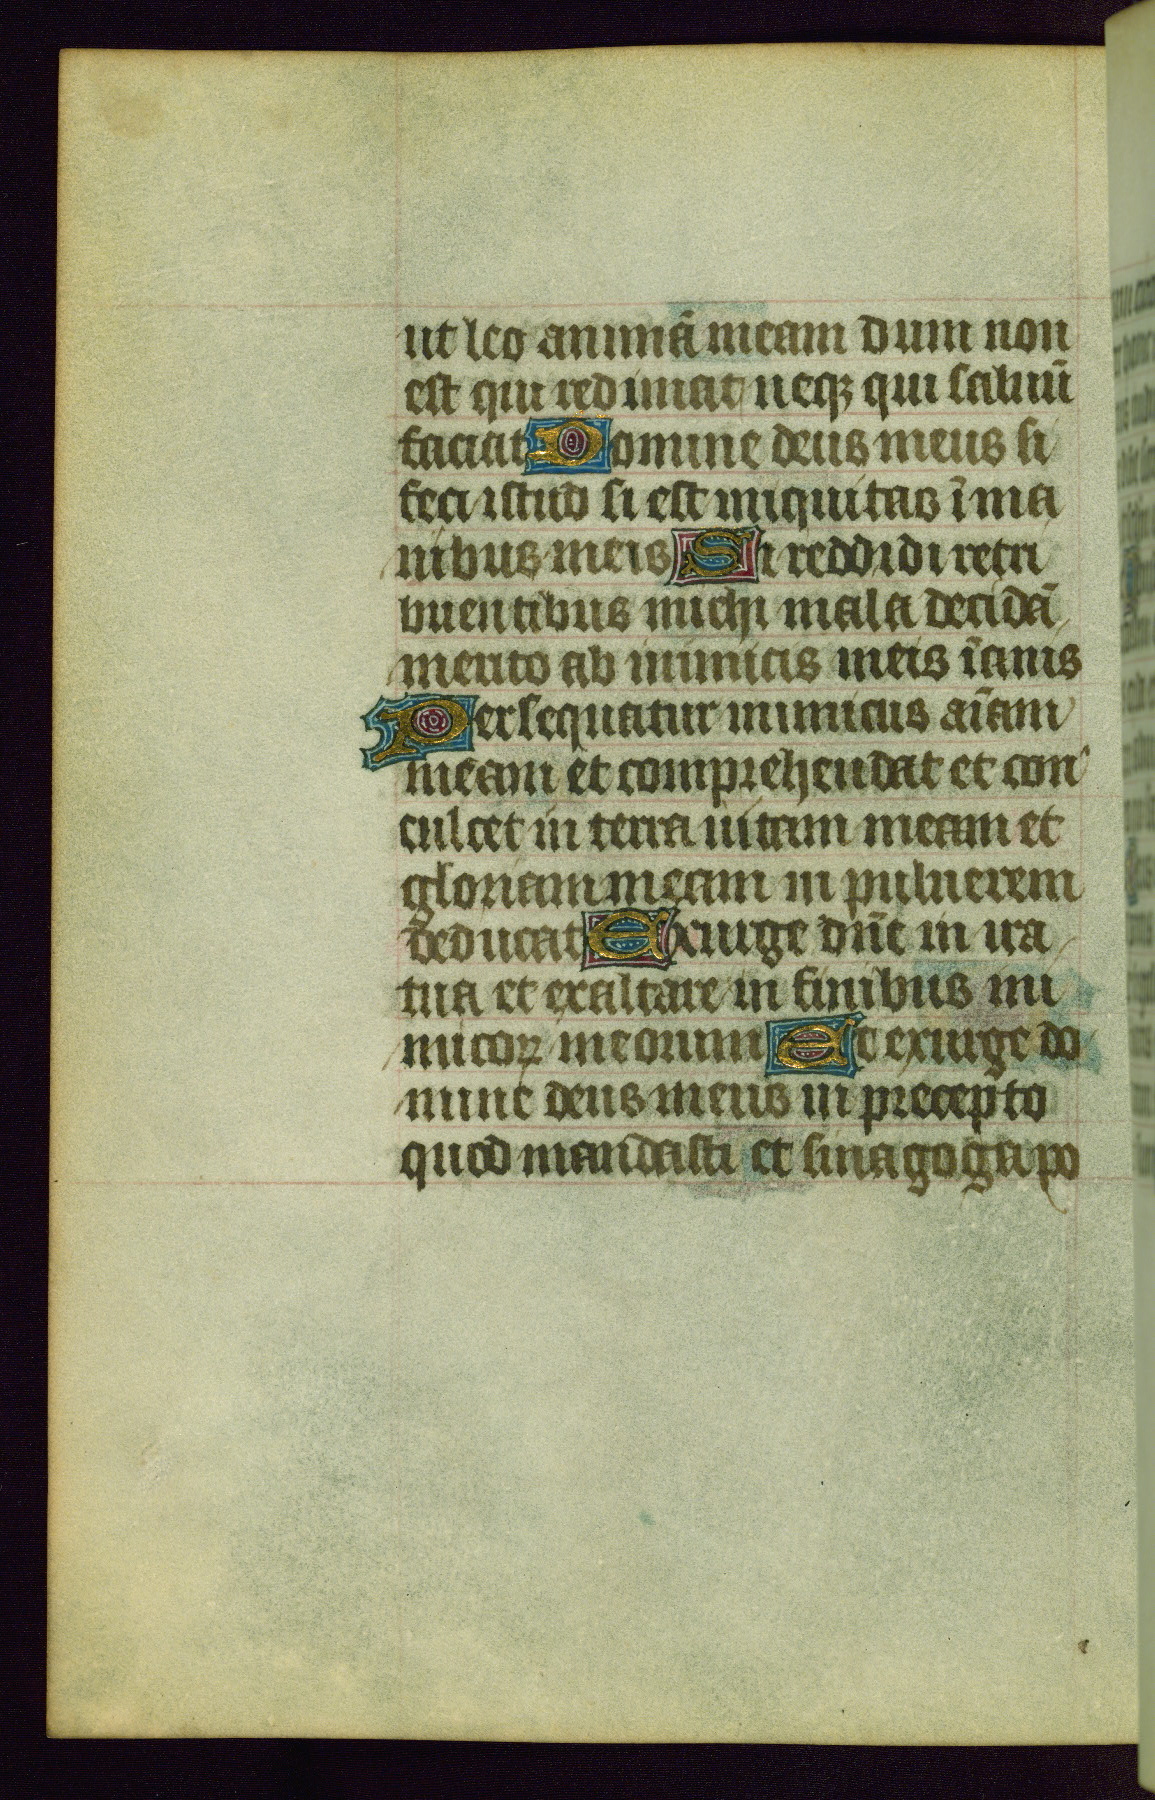 ut leo animā meam dum non
est qui redimat neqꝫ qui saluū
faciat Domine deus meus si
feci istud si est iniquitas ī ma
nibus meis Si reddidi retri
buentibus michi mala decidā
merito ab inimicis meis īanis
Persequatur inimicus aīam
meam et comprehendat et con
culcet in terra uitam meam et
gloriam meam in puluerem
deducat Exurge dn̄e in ira
tua et exaltare in finibus ini
micoꝝ meorum Et exurge do
mine deus meus in precepto
quod mandasti et sinagoga po